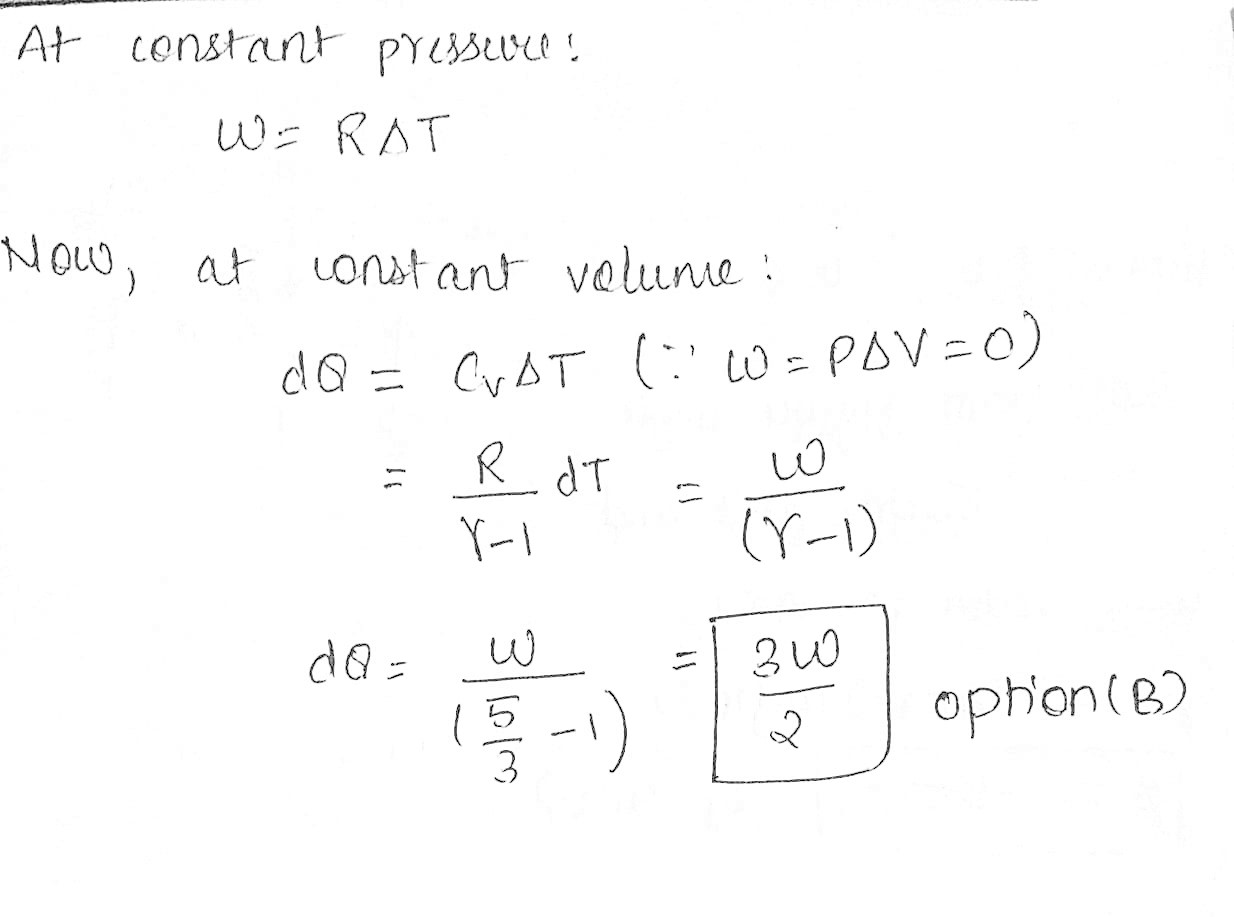 At constant pressure:
W = RΔT
Now, at constant volume:
dQ = CvΔT (∵ W = PΔV = 0)
= R/(γ-1) dT = W/(γ-1)
dQ = W/(5/3 - 1) = 3W/2 option (B)